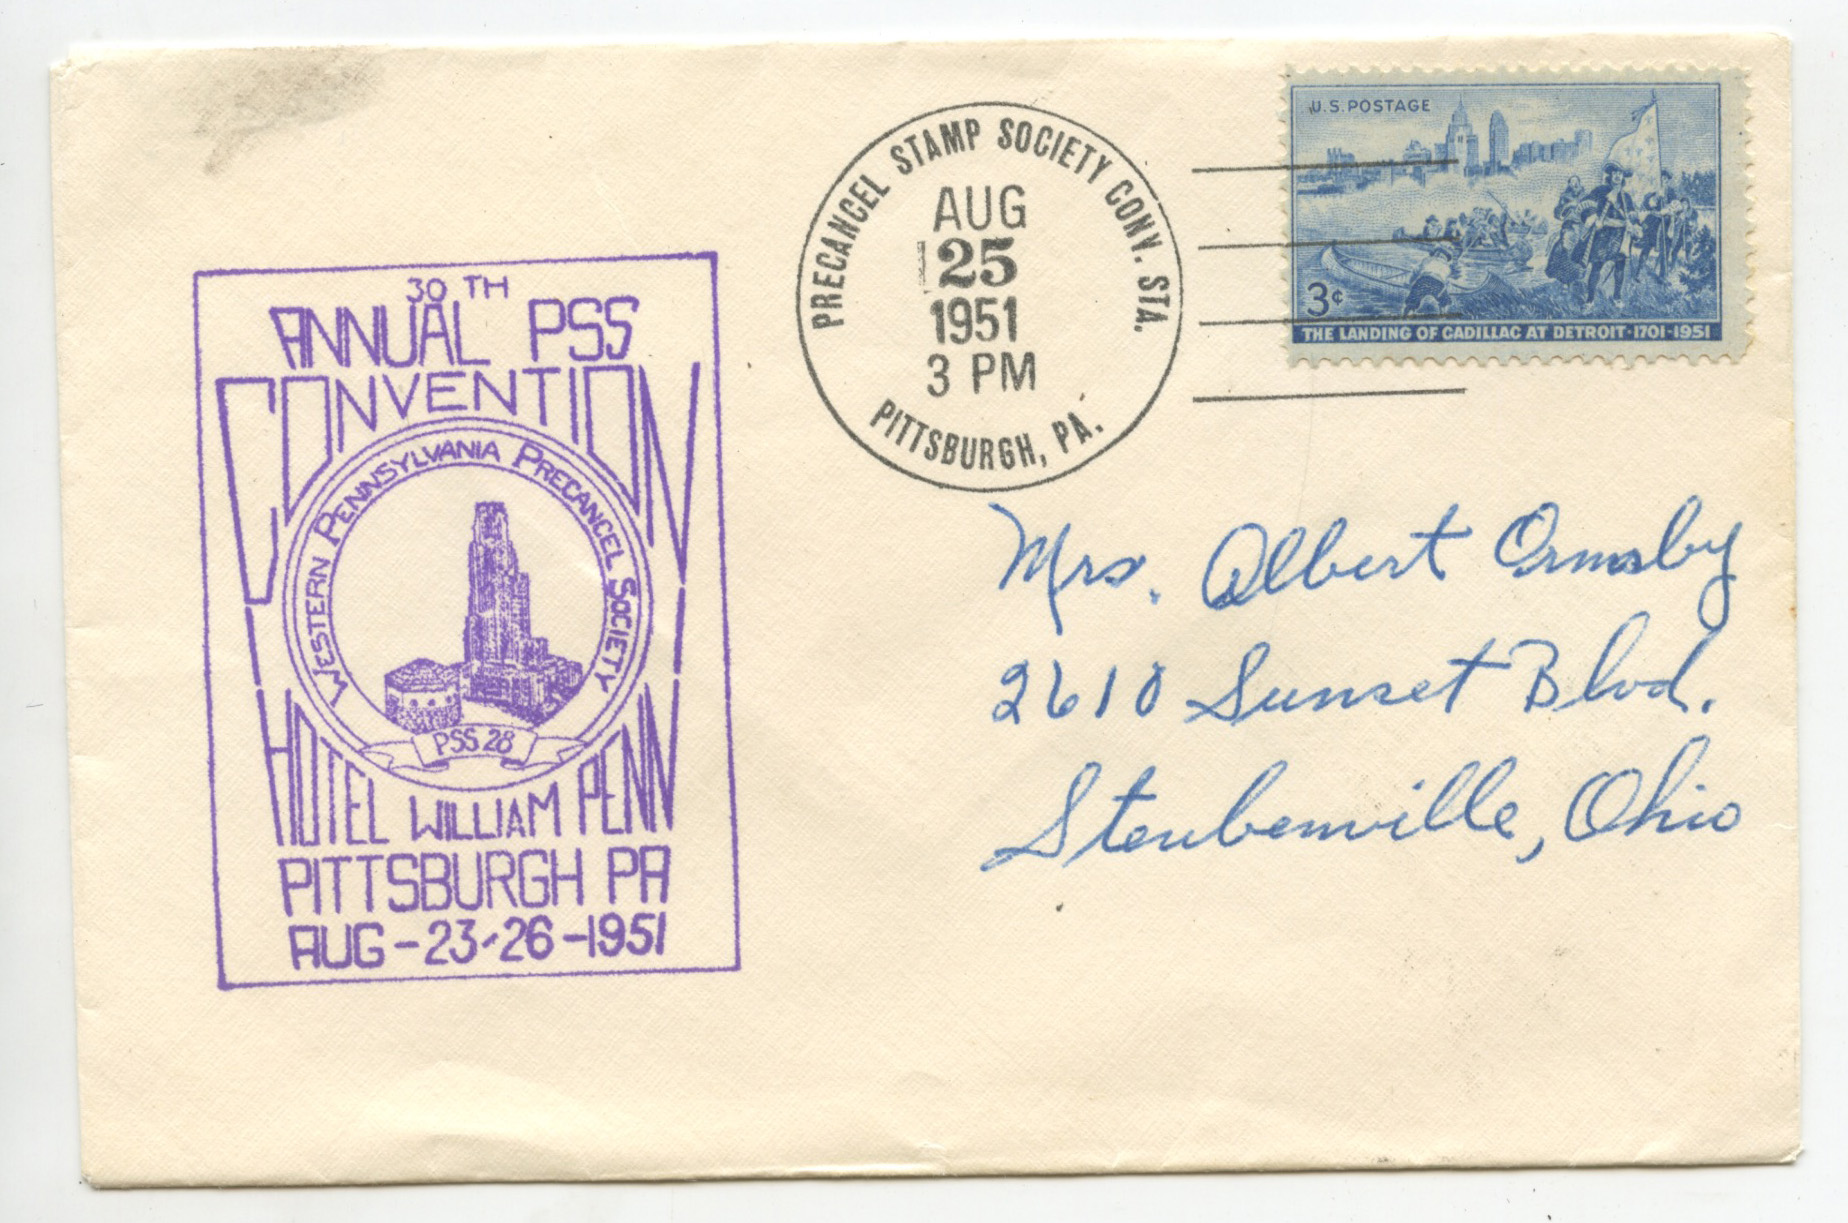 30 TH
ANNUAL PSS
CONVENTION
WESTERN PENNSYLVANIA PRECANCEL SOCIETY
PSS 28
HOTEL WILLIAM PENN
PITTSBURGH PA
AUG-23-26-1951
PRECANCEL STAMP SOCIETY CONV. STA.
AUG
25
1951
3 PM
PITTSBURGH, PA.
U.S. POSTAGE
3¢
THE LANDING OF CADILLAC AT DETROIT·1701-1951
Mrs. Albert Ormsby
2610 Sunset Blvd.
Steubenville, Ohio